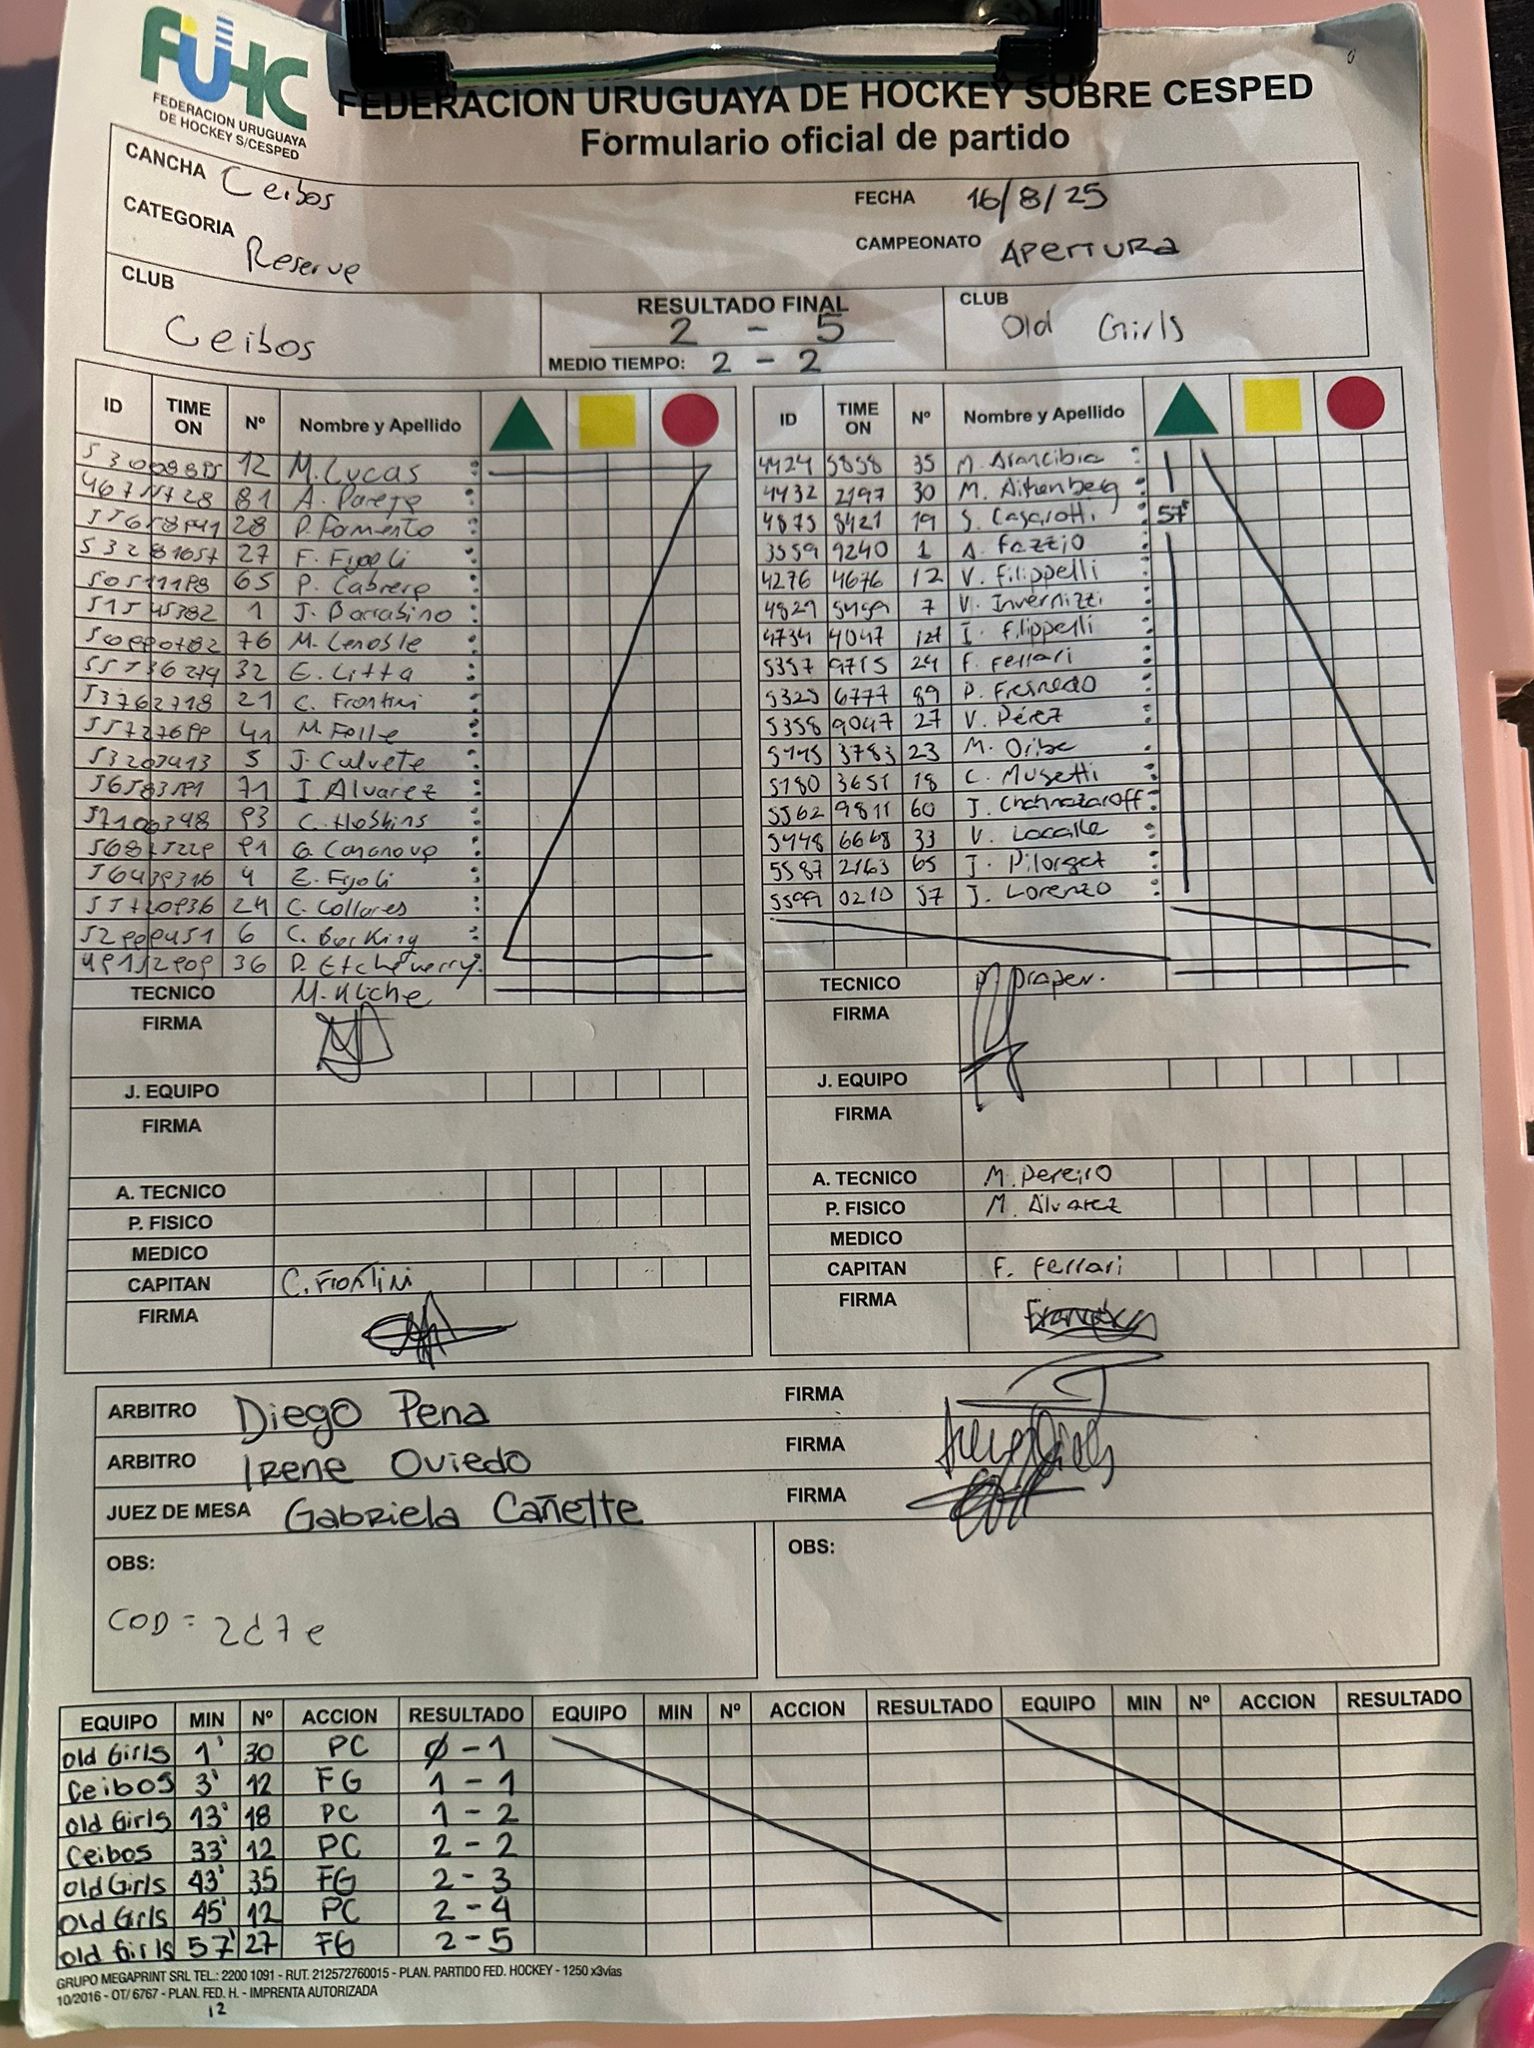 FUHC
FEDERACION URUGUAYA
DE HOCKEY S/CESPED
FEDERACION URUGUAYA DE HOCKEY SOBRE CESPED
Formulario oficial de partido
CANCHA Ceibos FECHA 16/8/25
CATEGORIA Reserve CAMPEONATO APERTURA
CLUB Ceibos RESULTADO FINAL 2 - 5 CLUB Old Girls
MEDIO TIEMPO: 2 - 2
ID TIME ON Nº Nombre y Apellido ID TIME ON Nº Nombre y Apellido
12 M. Lucas 4424 5858 35 M. Arancibia
81 A. Pareja 4432 2197 30 M. Aitkenberg
28 P. Formento 4875 8421 19 S. Casarotti 57'
27 F. Fijoli 3559 9240 1 A. Fazzio
65 P. Cabrera 4276 4676 12 V. Filippelli
1 J. Barrabino 4829 7 V. Invernizzi
76 M. Lenoble 4734 4047 I. Filippelli
32 E. Litta 5357 9715 24 F. Ferrari
53762718 21 C. Frontini 5325 6777 89 P. Fresnedo
41 M. Folle 5358 9047 27 V. Pérez
5 J. Calvete 5445 3783 23 M. Oribe
71 I. Alvarez 5180 3651 18 C. Musetti
93 C. Hoskins 5562 9811 60 J. Chahnazaroff
91 G. Casanova 5448 6668 33 V. Lacalle
4 Z. Fijoli 5587 2163 65 J. Pilorget
24 C. Collares 5599 0210 57 J. Lorenzo
6 C. Bocking
36 D. Etcheverry
TECNICO M. Kliche TECNICO Draper.
FIRMA FIRMA
J. EQUIPO J. EQUIPO
FIRMA FIRMA
A. TECNICO A. TECNICO M. Pereiro
P. FISICO P. FISICO M. Alvarez
MEDICO MEDICO
CAPITAN C. Frontini CAPITAN F. Ferrari
FIRMA FIRMA
ARBITRO Diego Pena FIRMA
ARBITRO Irene Oviedo FIRMA
JUEZ DE MESA Gabriela Cañette FIRMA
OBS: OBS:
COD = 2d7e
EQUIPO MIN Nº ACCION RESULTADO EQUIPO MIN Nº ACCION RESULTADO EQUIPO MIN Nº ACCION RESULTADO
Old Girls 1' 30 PC Ø - 1
Ceibos 3' 12 FG 1 - 1
Old Girls 13' 18 PC 1 - 2
Ceibos 33' 12 PC 2 - 2
Old Girls 43' 35 FG 2 - 3
Old Girls 45' 12 PC 2 - 4
Old Girls 57' 27 FG 2 - 5
GRUPO MEGAPRINT SRL TEL.: 2200 1091 - RUT. 212572760015 - PLAN. PARTIDO FED. HOCKEY - 1250 x3vías
10/2016 - OT/ 6767 - PLAN. FED. H. - IMPRENTA AUTORIZADA
12